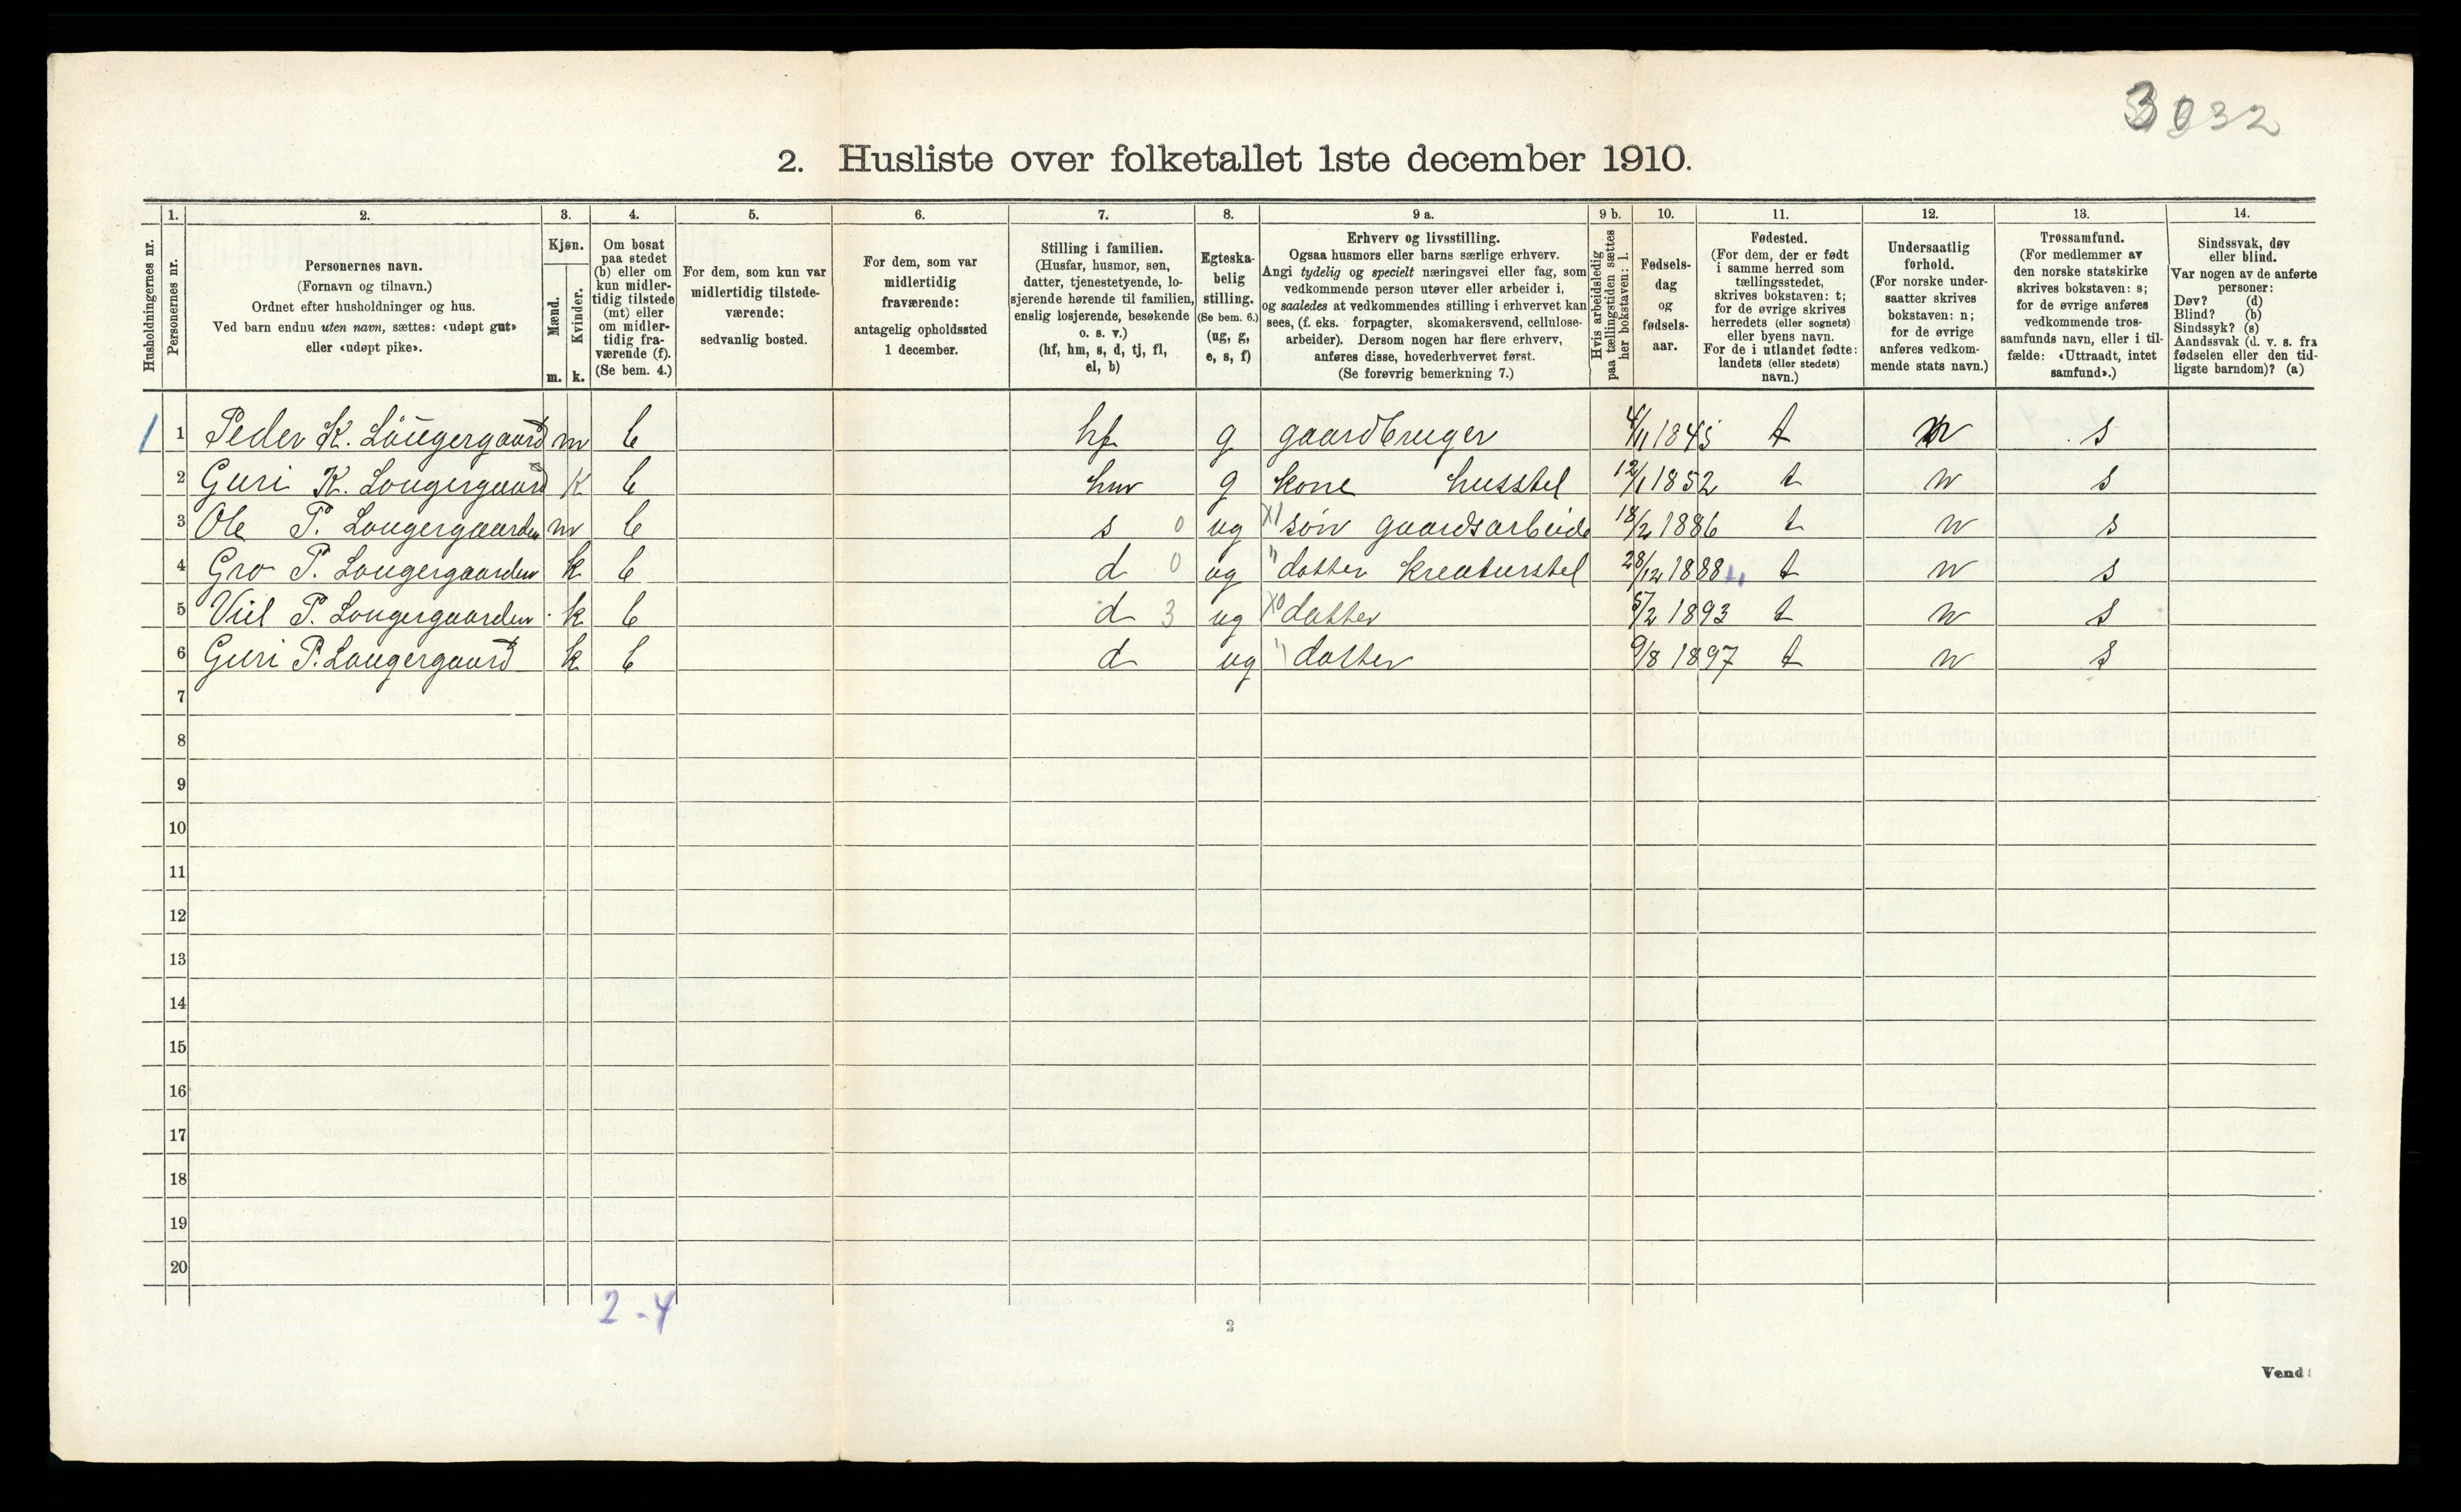 3032
2. Husliste over folketallet 1ste december 1910.
Husholdningernes nr.
1.
Personernes nr.
2.
Personernes navn.
(Fornavn og tilnavn.)
Ordnet efter husholdninger og hus.
Ved barn endnu uten navn, sættes: «udøpt gut»
eller «udøpt pike».
3.
Kjøn.
Mænd.
Kvinder.
m. k.
4.
Om bosat
paa stedet
(b) eller om
kun midler-
tidig tilstede
(mt) eller
om midler-
tidig fra-
værende (f).
(Se bem. 4.)
5.
For dem, som kun var
midlertidig tilstede-
værende:
sedvanlig bosted.
6.
For dem, som var
midlertidig
fraværende:
antagelig opholdssted
1 december.
7.
Stilling i familien.
(Husfar, husmor, søn,
datter, tjenestetyende, lo-
sjerende hørende til familien,
enslig losjerende, besøkende
o. s. v.)
(hf, hm, s, d, tj, fl,
el, b)
8.
Egteska-
belig
stilling.
(Se bem. 6.)
(ug, g,
e, s, f)
9 a.
Erhverv og livsstilling.
Ogsaa husmors eller barns særlige erhverv.
Angi tydelig og specielt næringsvei eller fag, som
vedkommende person utøver eller arbeider i,
og saaledes at vedkommendes stilling i erhvervet kan
sees, (f. eks. forpagter, skomakersvend, cellulose-
arbeider). Dersom nogen har flere erhverv,
anføres disse, hovederhvervet først.
(Se forøvrig bemerkning 7.)
9 b.
Hvis arbeidsledig
paa tællingstiden sættes
her bokstaven: l.
10.
Fødsels-
dag
og
fødsels-
aar.
11.
Fødested.
(For dem, der er født
i samme herred som
tællingsstedet,
skrives bokstaven: t;
for de øvrige skrives
herredets (eller sognets)
eller byens navn.
For de i utlandet fødte:
landets (eller stedets)
navn.)
12.
Undersaatlig
forhold.
(For norske under-
saatter skrives
bokstaven: n;
for de øvrige
anføres vedkom-
mende stats navn.)
13.
Trossamfund.
(For medlemmer av
den norske statskirke
skrives bokstaven: s;
for de øvrige anføres
vedkommende tros-
samfunds navn, eller i til-
fælde: «Uttraadt, intet
samfund».)
14.
Sindssvak, døv
eller blind.
Var nogen av de anførte
personer:
Døv? (d)
Blind? (b)
Sindssyk? (s)
Aandssvak (d. v. s. fra
fødselen eller den tid-
ligste barndom)? (a)
1 1 Peder K. Lougergaard m b hf g gaardbruger 4/11 1845 t n s
2 Guri K. Lougergaard k b hm g kone husstel 12/1 1852 t n s
3 Ole P. Lougergaarden m b s 0 ug X1 søn gaardsarbeide 18/2 1886 t n s
4 Gro P. Lougergaarden k b d 0 ug " datter kreaturstel 28/12 1888 t n s
5 P. Lougergaarden k b d 3 ug X0 datter 5/2 1893 t n s
6 Guri P. Lougergaard k b d ug " datter 9/8 1897 t n s
7
8
9
10
11
12
13
14
15
16
17
18
19
20
2 - 4
2
Vend!